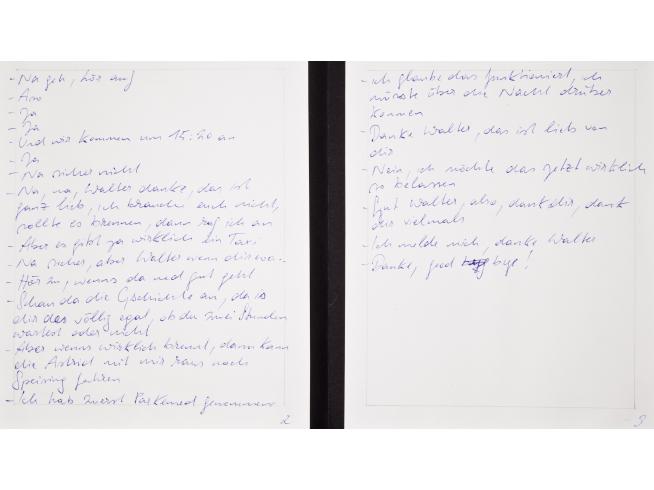 - Na geh, hör auf
- Aso
- Ja
- Ja
- Und wir kommen um 15:20 an
- Ja
- Na sicher nicht
- Na, na, Walter danke, das ist
ganz lieb, ich brauche euch nicht,
sollte es brennen, dann ruf ich an
- Aber es gibt ja wirklich ein Taxi
- Na sicher, aber Walter wenn dir
- Hör zu, wenns da ned gut geht
- Schau da die Gschichte an, da is
dir das völlig egal, ob du zwei Stunden
wartest oder nicht
- Aber wenns wirklich brennt, dann kann
die Astrid mit mir raus nach
Speising fahren
- Ich hab zuerst Parkemed genommen
2
- Ich glaube das funktioniert, ich
müsste über die Nacht drüber
kommen
- Danke Walter, das ist lieb von
dir
- Nein, ich möchte das jetzt wirklich
so belassen
- Gut Walter, also, dank dir, dank
dir vielmals
- Ich melde mich, danke Walter
- Danke, good bye!
3